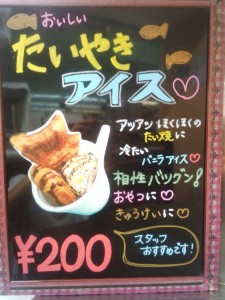 おいしい
たいやき
アイス♡
アツアツ ほくほくの
たい焼に
冷たい
バニラアイス♡
相性バツグン!
おやつに♡
きゅうけいに♡
¥200
スタッフ
おすすめです!